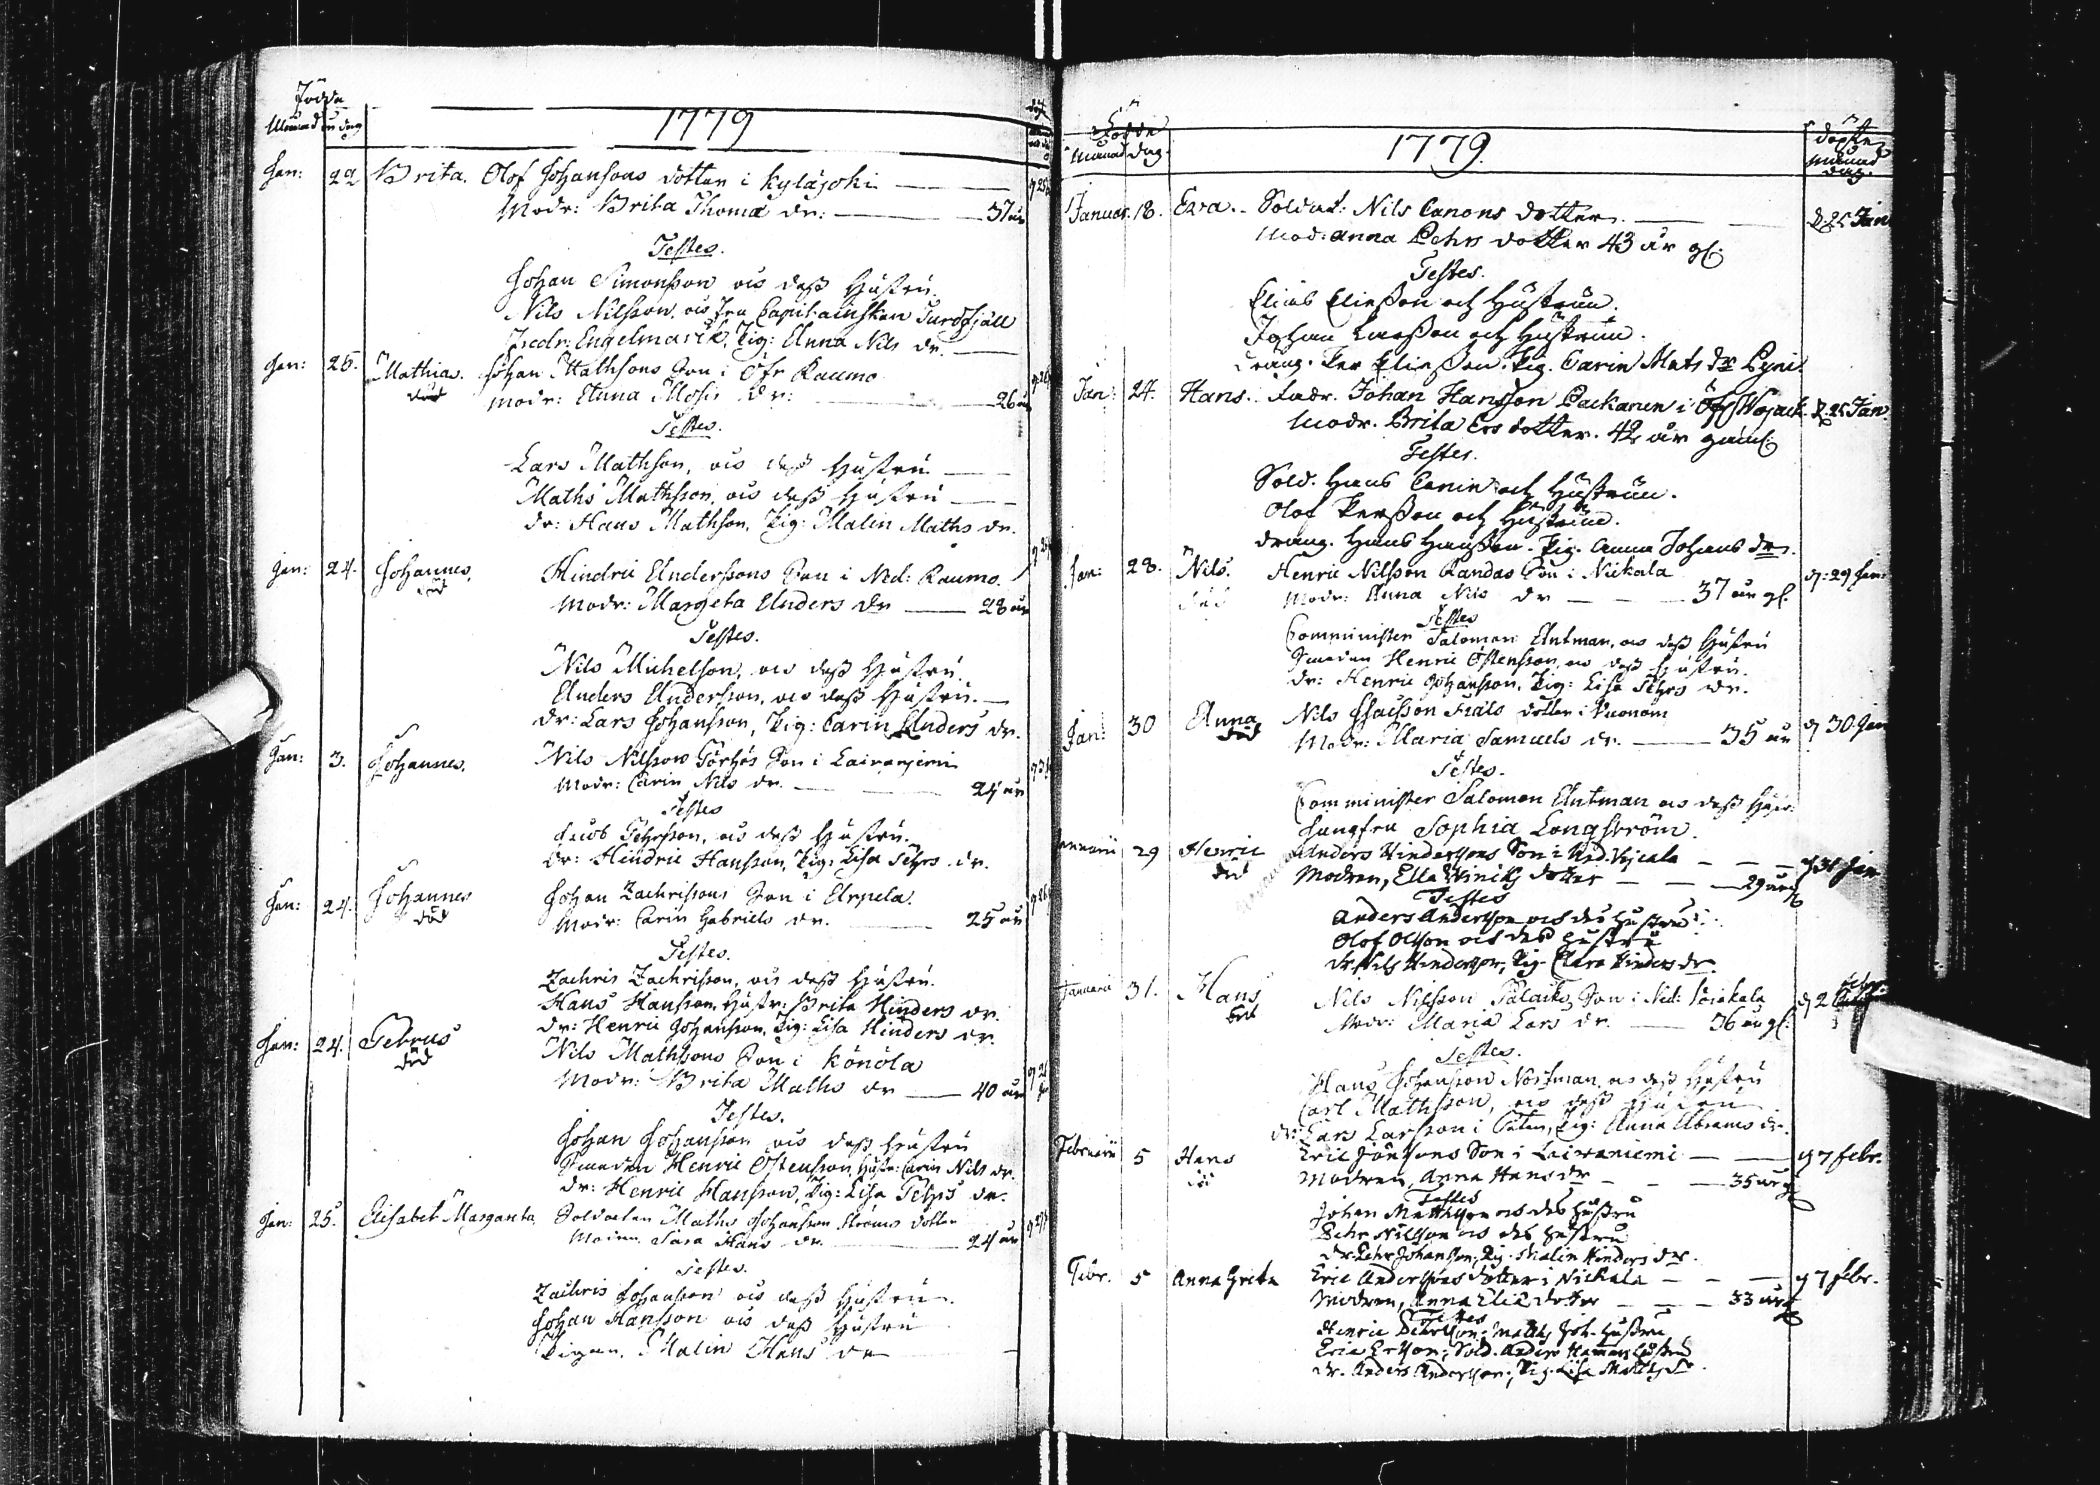 Födde
Månad och dag
1779
Jan: 22 Brita. Olof Johansons dotter i Kyläjoki
Modr: Brita Thomæ dr: 37 år
Testes.
Johan Simonsson och dess Hustru.
Nils Nilsson, och fru Capitainskan Turdfjäll
Fredr: Engelmarck, Pig: Anna Nils dr.
Jan: 26. Mathias. Johan Mathsons Son i Öfr Raumo
död Modr: Anna Mosis dr: 26 år
Testes.
Lars Mathson, och dess Hustru
Maths Mathsson, och dess Hustru
dr: Hans Mathson, Pig: Malin Maths dr.
Jan: 24. Johannes. Hindric Anderssons Son i Ned: Raumo.
död Modr: Margeta Anders dr 28 år
Testes.
Nils Michelson, och dess Hustru.
Anders Anderson, och dess Hustru.
dr: Lars Johansson, Pig: Carin Anders dr.
Jan: 3. Johannes. Nils Nilssons Son i Laivaniemi
Modr: Carin Nils dr. 24 år
Testes
Jacob Pehrsson, och dess Hustru.
dr: Hindric Hansson, Pig: Lisa Pehrs dr.
Jan: 24. Johannes Johan Zachrissons Son i Arpela.
död Modr: Carin Gabriels dr. 25 år
Testes.
Zachris Zachrisson, och dess Hustru.
Hans Hansson, Hustr: Brita Hinders dr.
dr: Henric Johansson, Pig: Lisa Hinders dr.
Jan: 24. Petrus Nils Mathsons Son i Könölä
död Modr: Brita Maths dr 40 år
Testes.
Johan Johansson och dess Hustru
Smeden Henric Östensson, Hustr: Carin Nils dr.
dr: Henric Hansson, Pig: Lisa Pehrs dr.
Jan: 25. Elisabet Margareta. Soldaten Maths Johansson Ströms dotter
Modren Sara Hans dr. 24 år
Testes.
Zachris Johansson och dess Hustru.
Johan Hansson och dess Hustru
Pigan. Malin Hans dr
Födde
Månad Dag.
1779.
Döpte
Månad
dag.
Januar. 18. Eva. Soldat: Nils Canons dotter. D. 25 Jan
Mod: Anna Pehrs dotter 43 år gl.
Testes.
Elias Eliesson och Hustrun.
Johan Larsson och Hustrun.
Dräng. Per Eliesson. Pig. Carin Mats dr Pyni.
Jan: 24. Hans. Fadr. Johan Hansson Packanen i Öfr Wojack. D. 25 Jan.
Modr. Brita Ers dotter. 42 år gaml.
Testes.
Sold. Hans Canin och Hustrun.
Olof Persson och Hustrun.
Dräng. Hans Hansson. Pig. Anna Johans dr.
Jan: 28. Nils. Henric Nilsson Randas Son i Nickala d: 29 Jan:
död Modr: Anna Nils dr 37 år gl.
Testes
Comminister Salomon Antman, och dess Hustru
Smeden Henric Östensson, och dess Hustru.
dr: Henric Johansson, Pig: Lisa Pehrs dr.
Jan: 30 Anna Nils Isacsson dotter i d 30 Jan
död Modr: Maria Samuels dr. 35 år
Testes.
Comminister Salomon Antman och dess Hustr:
Jungfru Sophia Longström.
Januarii 29 Henric Anders Hinderssons Son i Ned. Vojcala d 31 Jan
död Modren, Ella dotter 29 år gl
Testes
Anders Andersson och des Hustru
Olof Olsson och des Hustru
dr. Nils Hindersson, Pig. Clara Hinders dr.
Januarii 31. Hans Nils Nilsson Son i Ned: d 2 Febr.
död Modr: Maria Lars dr. 36 år gl.
Testes.
Hans Johansson Nortman, och dess Hustru
Carl Mathsson, och dess Hustru
dr: Lars Larsson i Pig: Anna Abrams dr.
Februarii 5 Hans Eric Jönssons Son i Laivaniemi d 7 febr.
död Modren, Anna Hans dr 35 år gl
Testes
Johan Matthsson och des Hustru
Pehr Nilsson och des Hustru
dr. Pehr Johansson, Pig. Malin Hinders dr.
Febr. 5 Anna Greta Eric Anderssons dotter i Nickala d 7 febr.
Modren, Anna Eliæ dotter 33 år gl
Testes
Henric Pehrsson, Matth Joh. Hustru
Eric Ersson, Sold. Anders Hustru
dr. Anders Andersson, Pig. Lisa Matths dr